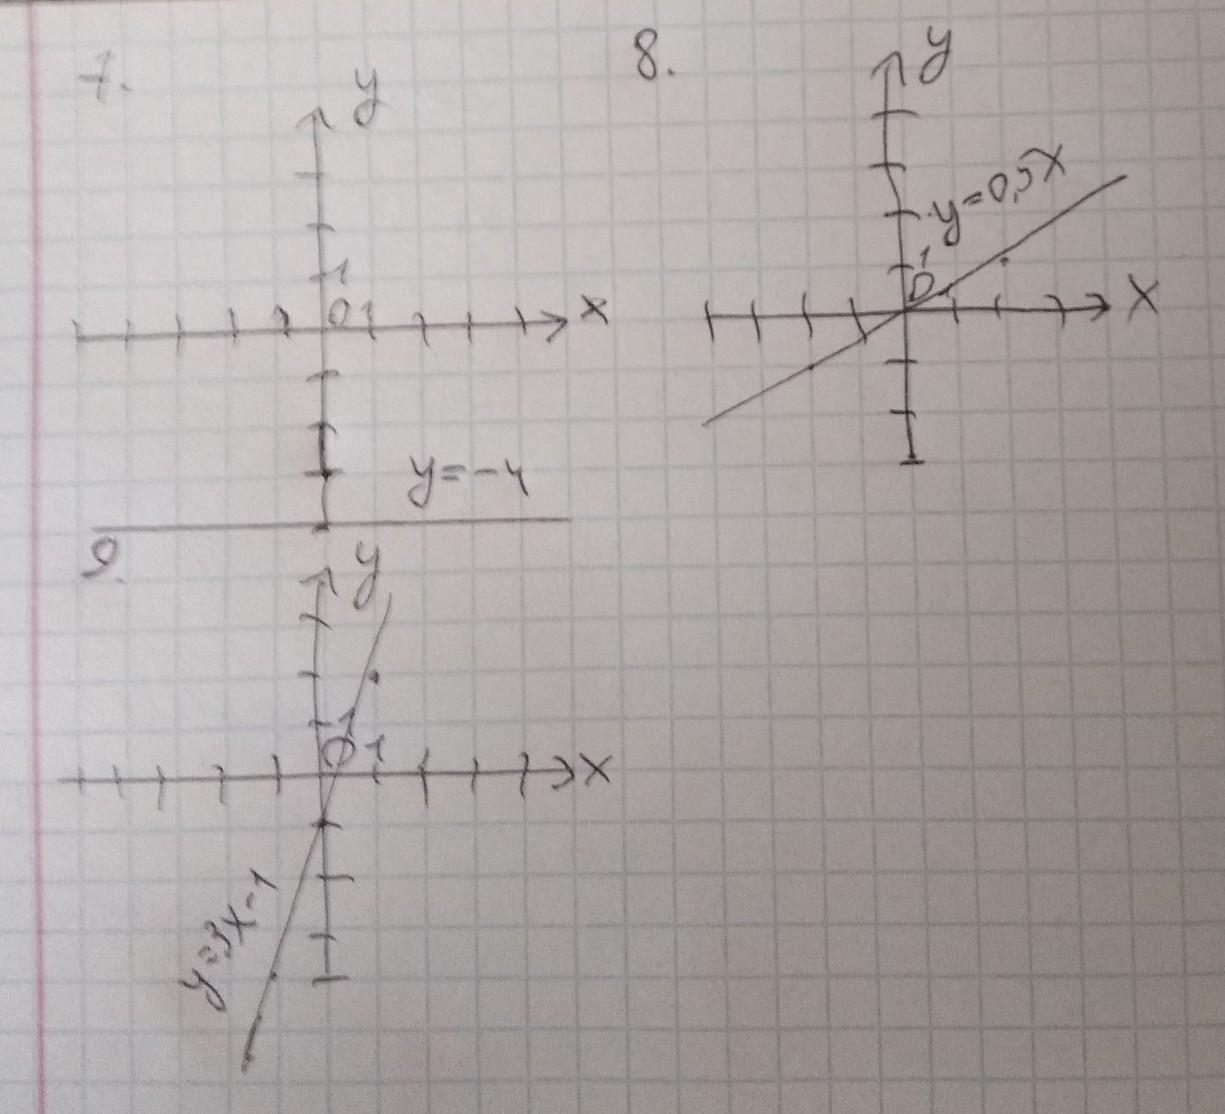 7.
y
1
0 1
x
y=-4
8.
y
y=0,5x
1
0
x
9.
y
1
0 1
x
y=3x-1